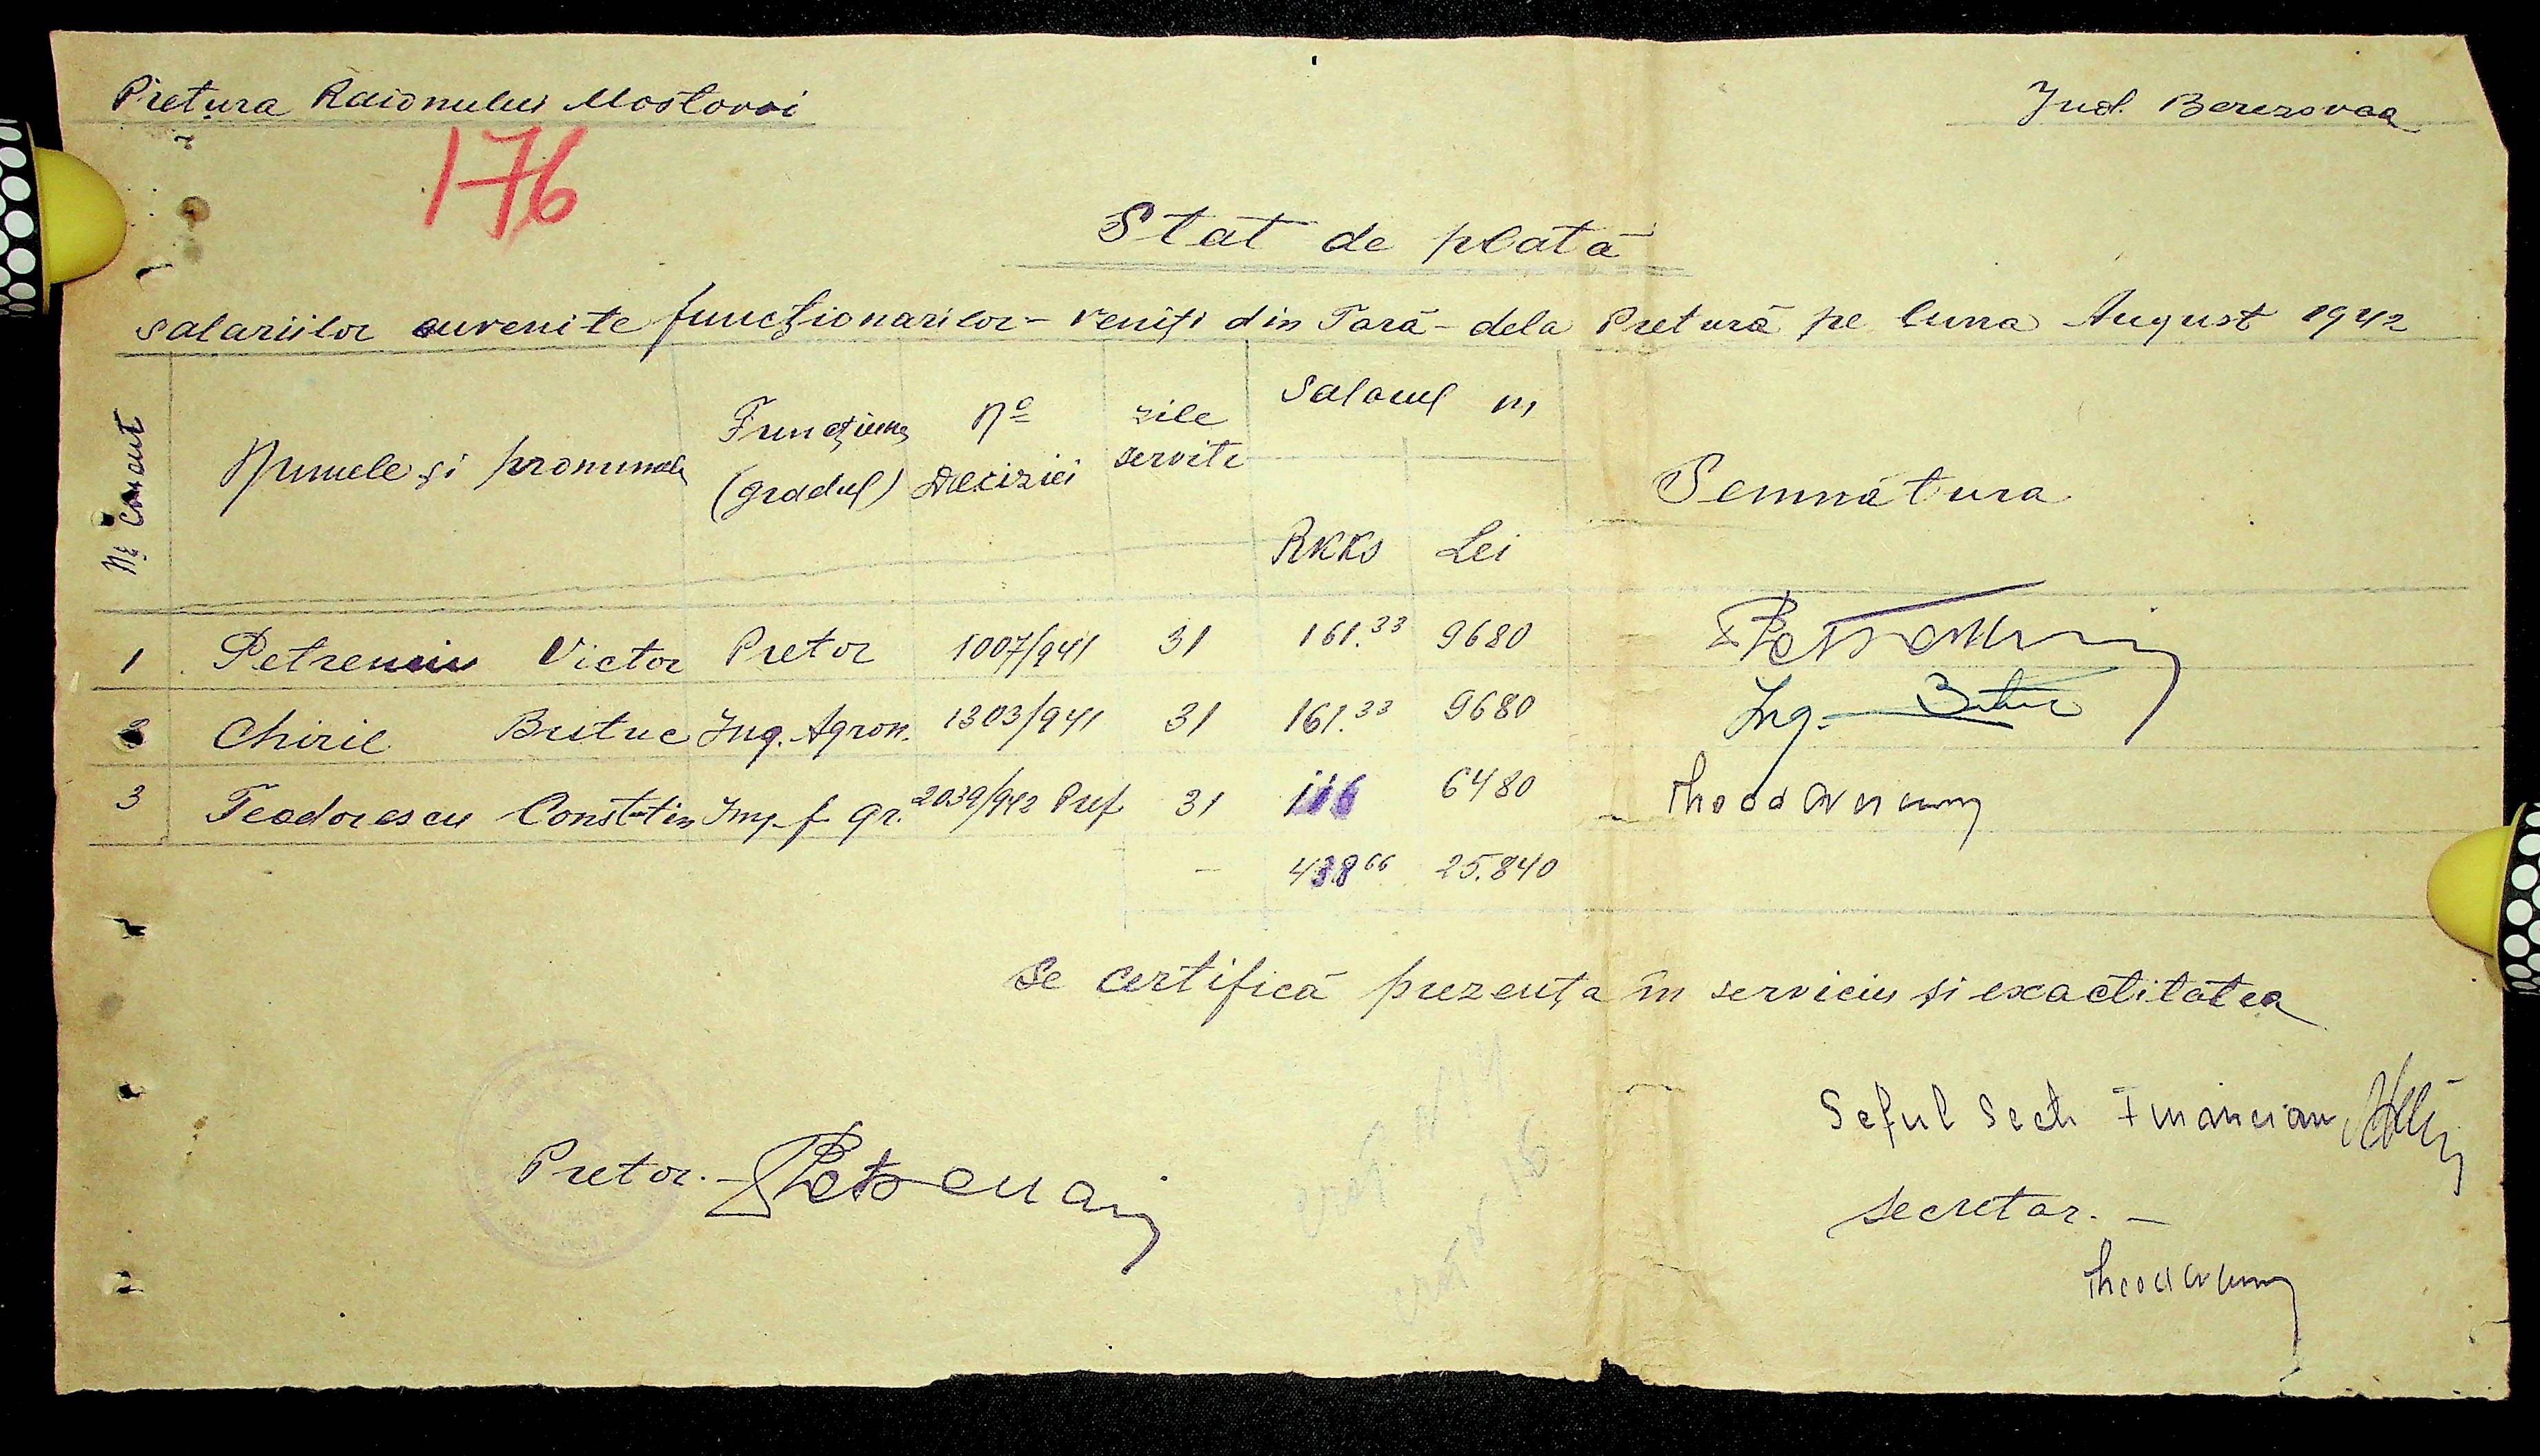 Pretura Raionului Mostovoi
Jud. Berezovca
176
Stat de plată
salariilor cuvenite funcționarilor - veniți din Țară - dela Pretură pe luna August 1942
Nr. Curent
Numele și pronumele
Funcțiunea
(gradul)
No
Deciziei
zile
servite
Salarul în
RKKS
Lei
Semnătura
1 Petrenciu Victor Pretor 1007/941 31 161.33 9680
2 Chiril Butuc Ing. Agron. 1303/941 31 161.33 9680 Ing. Butuc
3 Teodorescu Constatin Imp. f gr. 2039/942 Pref 31 116 6480
- 438 66 25.840
Se certifică prezența în serviciu și exactitatea
Seful Sect. Financiar
Pretor. -
Secretar. -